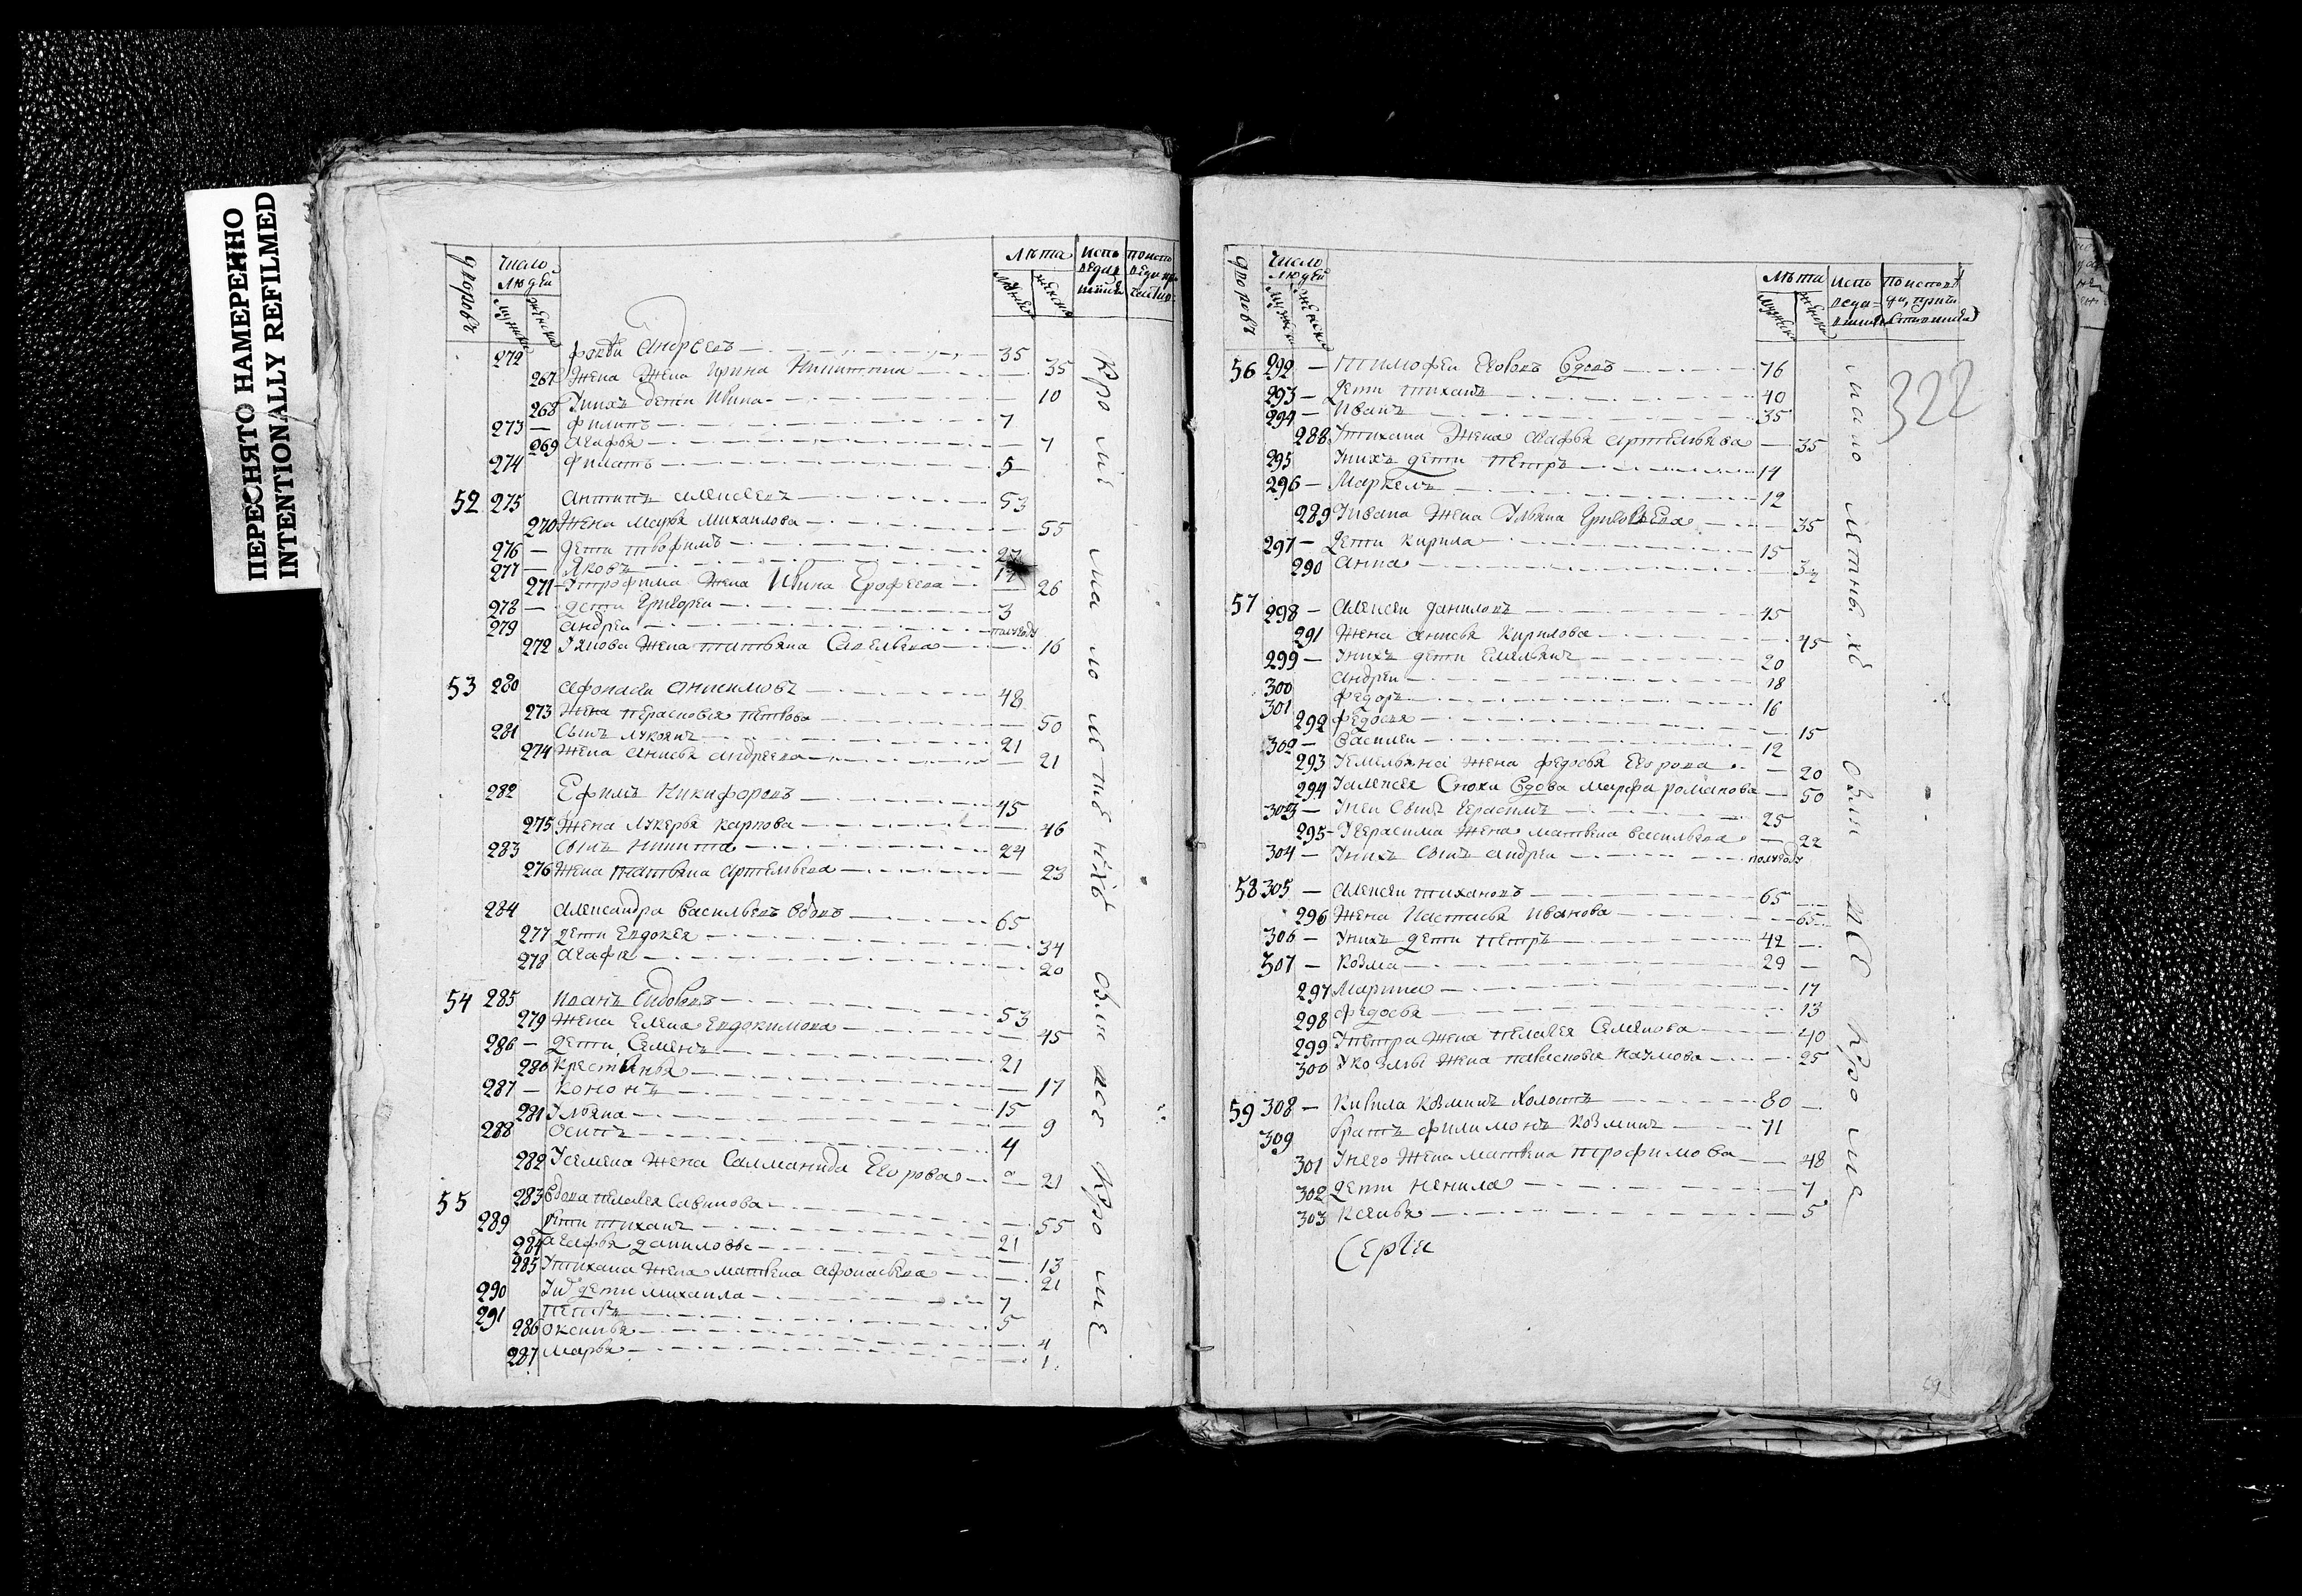 ПЕРЕСНЯТО НАМЕРЕННО
INTENTIONALLY REFILMED
дворовъ
Число людей
мужеска
женска
лѣта
мужеска
женска
испо ведав шїися
272 Андреевъ 35
267 Жена Жена Ирина Никитина 35
268 Унихъ дети Ирина 10
273 — Филипъ 7
269 Агафья 7
274 Филатъ 5
52 275 Антипъ Алексеевъ 53
270 Жена Марья Михаилова 55
276 — Дети Трофимъ 27
277 — Яковъ
271 Утрофима Жена Ирина Ерофеева 26
278 — дети Григореи 3
279 Андреи полугоду
272 Уякова Жена татьяна Савельева 16
53 280 Афонасеи Онисимовъ 48
273 Жена Парасковья Петрова 50
281 Сынъ Лукоянъ 21
274 Жена Анисья Андреева 21
282 Ефимъ Никифоровъ 45
275 Жена Лукерья Карпова 46
283 Сынъ Никита 24
276 Жена Татьяна Артемьева 23
284 Александра Васильевъ вдовъ 65
277 дети Евдокея 34
278 Агафья 20
54 285 Иванъ Сидоровъ 53
279 Жена Елена Евдокимова 45
286 — Дети Семенъ 21
280 Крестинья 17
287 — Кононъ 15
281 Ульяна 9
288 Осипъ 4
282 Усемена Жена Салманида Егорова 21
55 283 Вдова Пелагея Савинова 55
289 Дети Тиханъ 21
284 Агафья Данилова 13
285 Утихана Жена матрена Афонасьева 21
290 дети михаила 7
291 Петръ 5
286 Оксинья 4
287 Марья 1
Кро мѣ мало лѣтныхъ были все Кро ме
дворовъ
Число людей
мужеска
женска
лѣта
мужеска
женска
322
56 292 — Тимофеи Еговъ Вдовъ 76
293 — Дети Тиханъ 40
294 — Иванъ 35
288 Утихана Жена Агафья Артемьева 35
295 Унихъ дети Петръ 14
296 — Маркелъ 12
289 Уивана Жена Ульяна Григорьева 35
297 — Дети Кирила 15
290 Анна
57 298 — Алексеи Даниловъ 45
291 Жена Анисья Кирилова 45
299 — Унихъ дети Емельянъ 20
300 Андреи 18
301 Федоръ 16
292 Федосья 15
302 — Василеи 12
293 Уемельяна Жена Федосья Егорова 20
294 Уалексея Сноха Вдова Марфа романова 50
303 — Унеи Сынъ Герасимъ 25
295 Угерасима Жена матрена васильева 22
304 — Унихъ Сынъ Андреи полугоду
58 305 — Алексеи Тихановъ 65
296 Жена Настасья Иванова 65
306 — Унихъ дети Петръ 42
307 — Козма 29
297 Марина 17
298 Федосья 13
299 Упетра Жена Пелагея Семенова 40
300 Укозмы Жена парасковья Наумова 25
59 308 — Кирила Козминъ Холостъ 80
309 братъ Филимонъ Козминъ 71
301 Унего Жена матрена Трофимова 48
302 Дети Ненила 7
303 Ксенья 5
Серги
мало летны хъ были все Кро ме
69